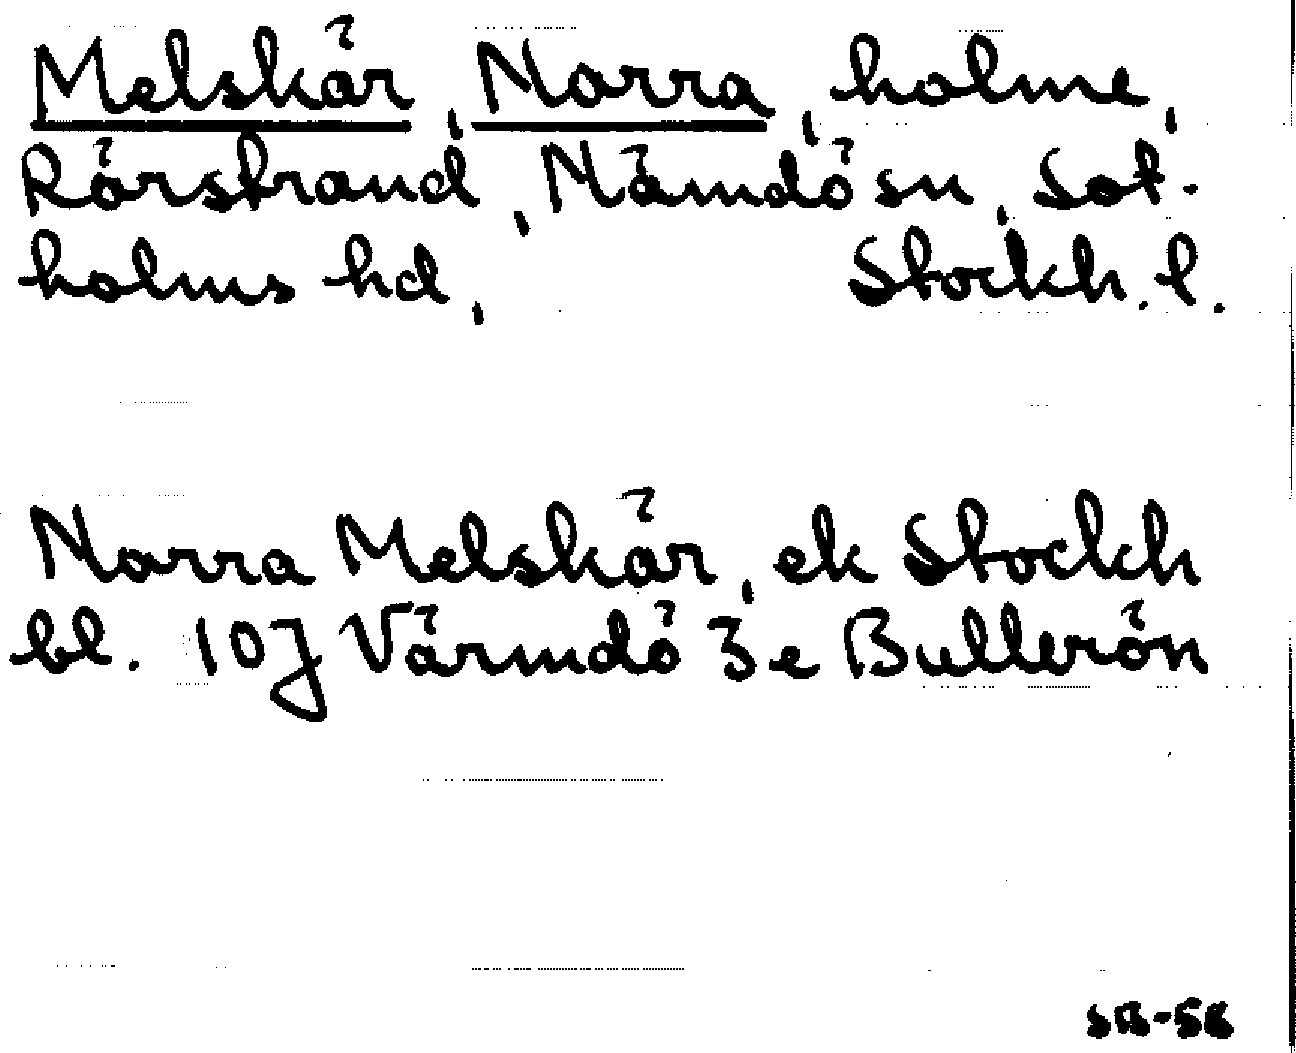 Melskär, Norra, holme,
Rörstrand, Nämdö sn, Sot-
holms hd, Stockh. l.
Norra Melskär, ek Stockh
bl. 10J Värmdö 3e Bullerön
SB-58